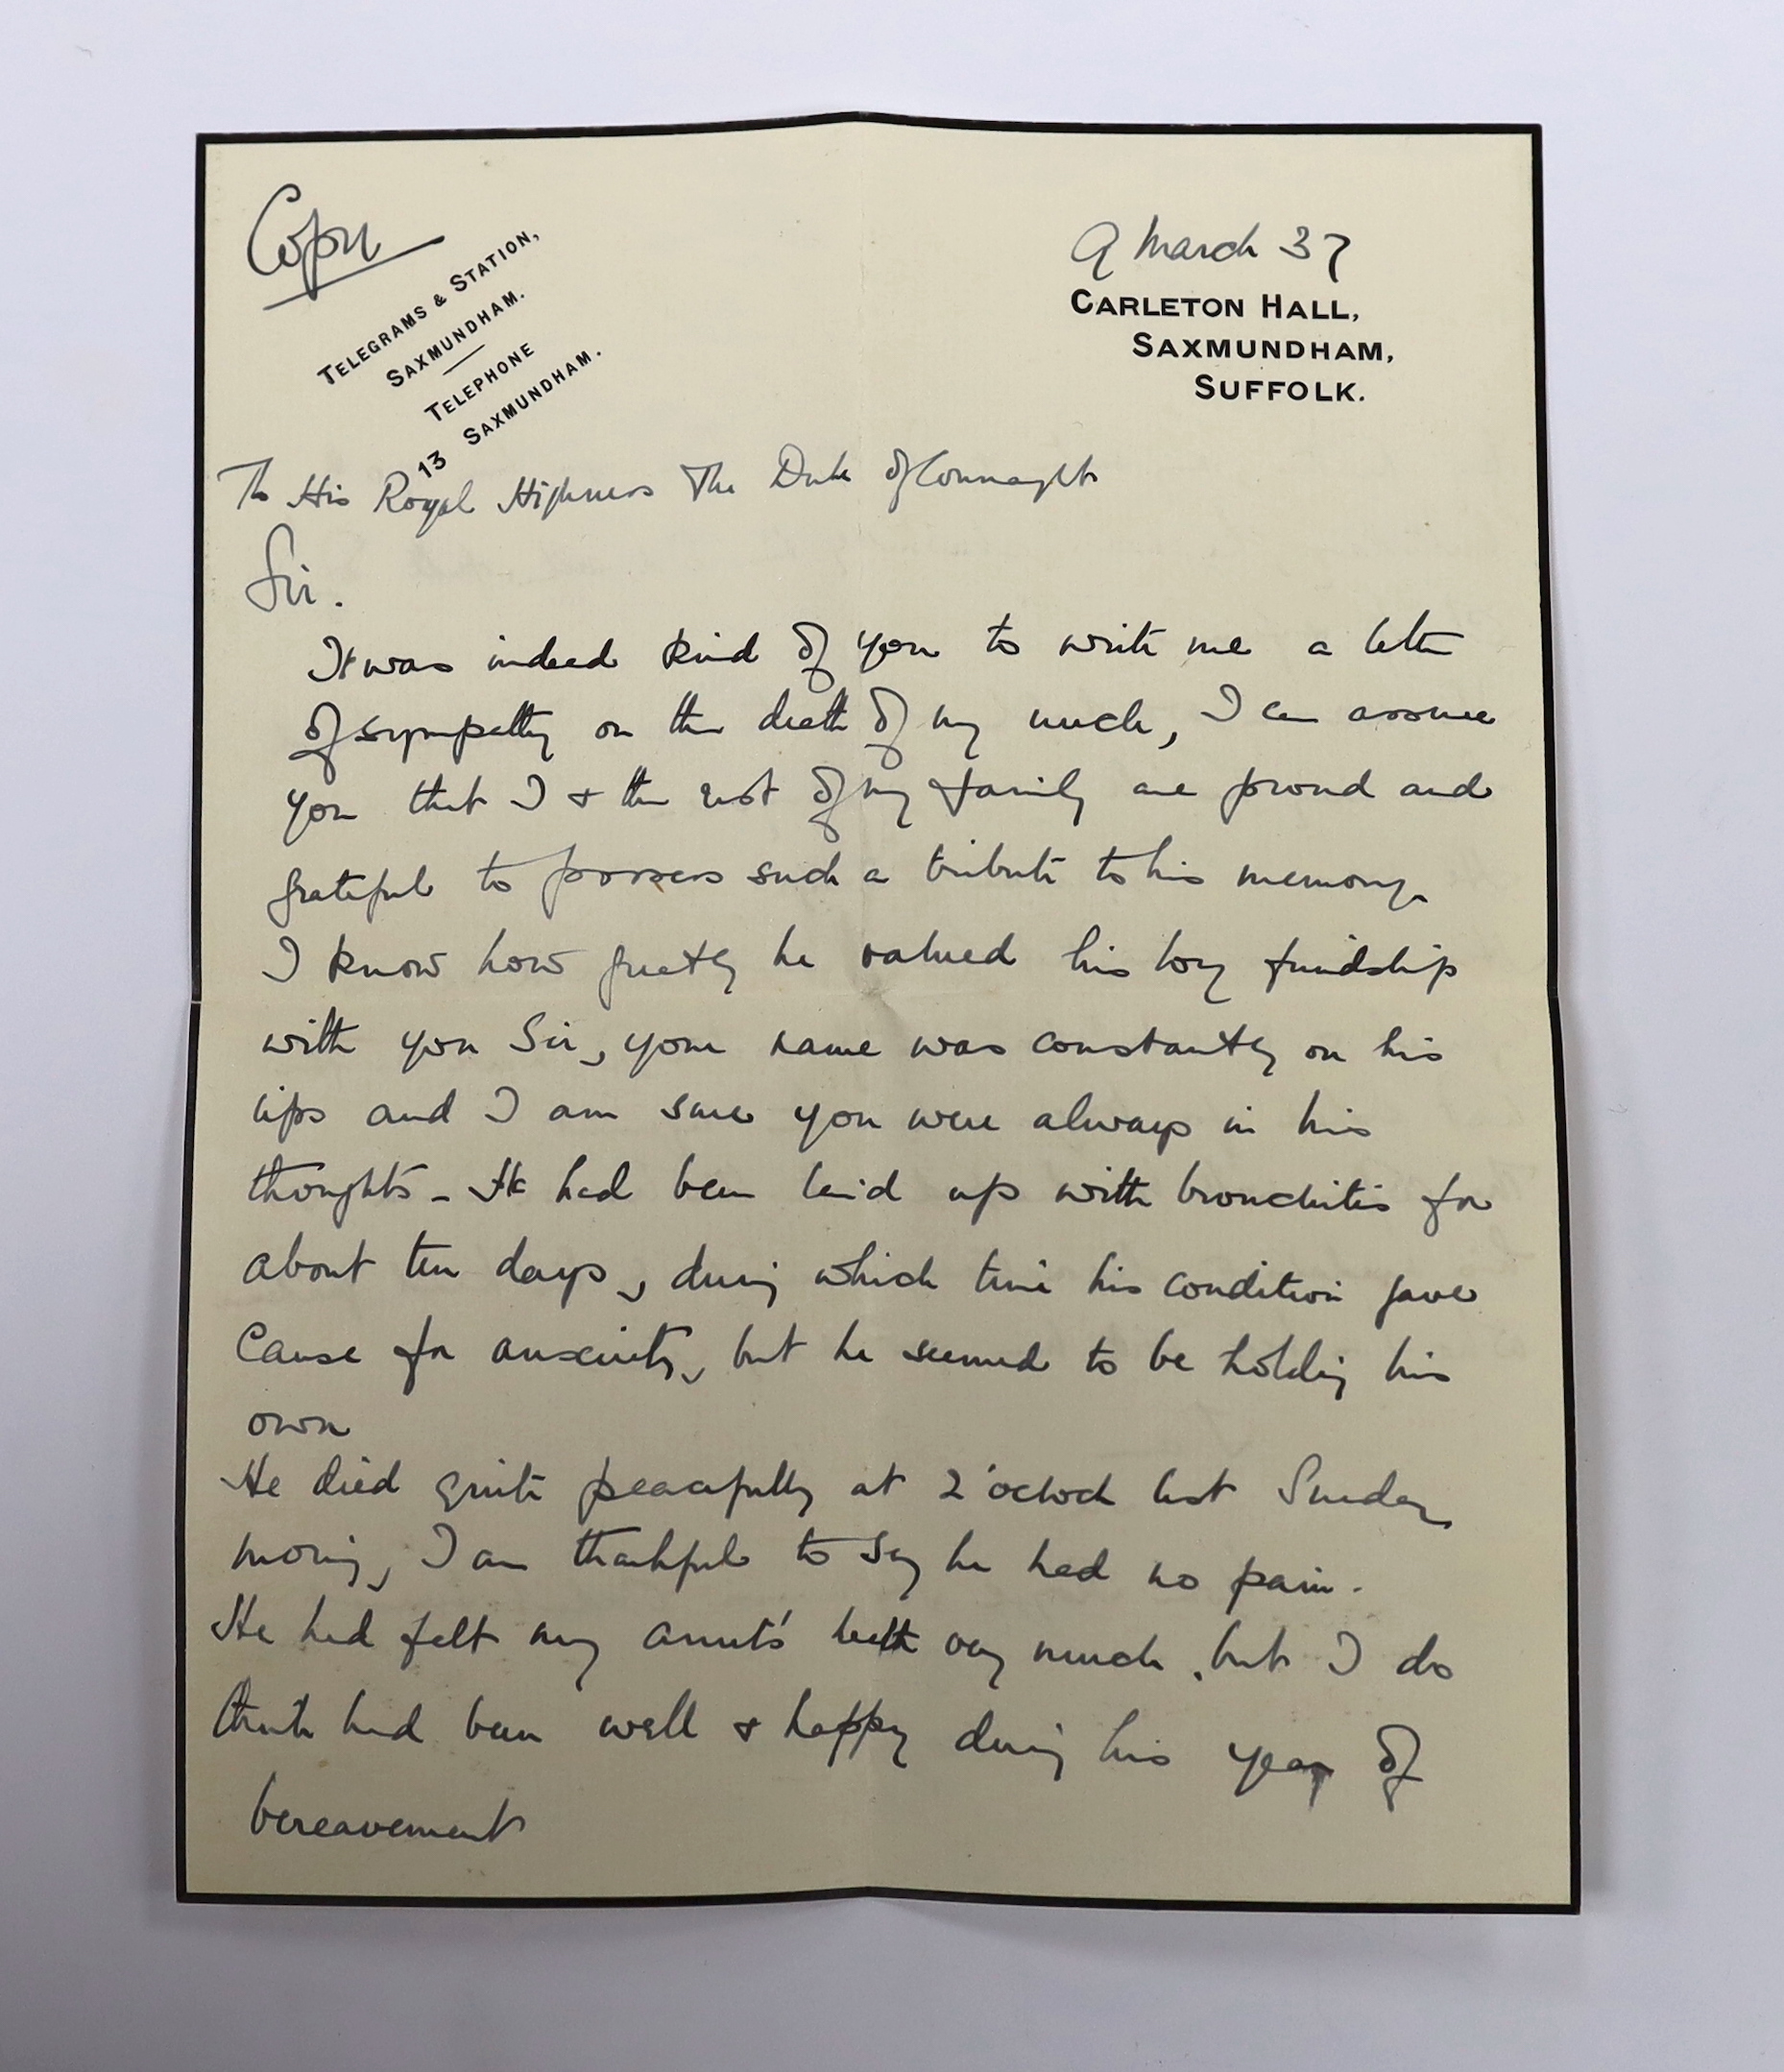 Copy
TELEGRAMS & STATION,
SAXMUNDHAM.
TELEPHONE
13 SAXMUNDHAM.
9 March 37
CARLETON HALL,
SAXMUNDHAM,
SUFFOLK.
To His Royal Highness The Duke of Connaught
Sir.
It was indeed kind of you to write me a letter
of sympathy on the death of my uncle, I can assure
you that I & the rest of my family are proud and
grateful to possess such a tribute to his memory.
I know how greatly he valued his long friendship
with you Sir, your name was constantly on his
lips and I am sure you were always in his
thoughts - He had been laid up with bronchitis for
about ten days, during which time his condition gave
cause for anxiety, but he seemed to be holding his
own
He died quite peacefully at 2 o'clock last Sunday
morning, I am thankful to say he had no pain.
He had felt my aunt's death very much, but I do
think had been well & happy during his year of
bereavement